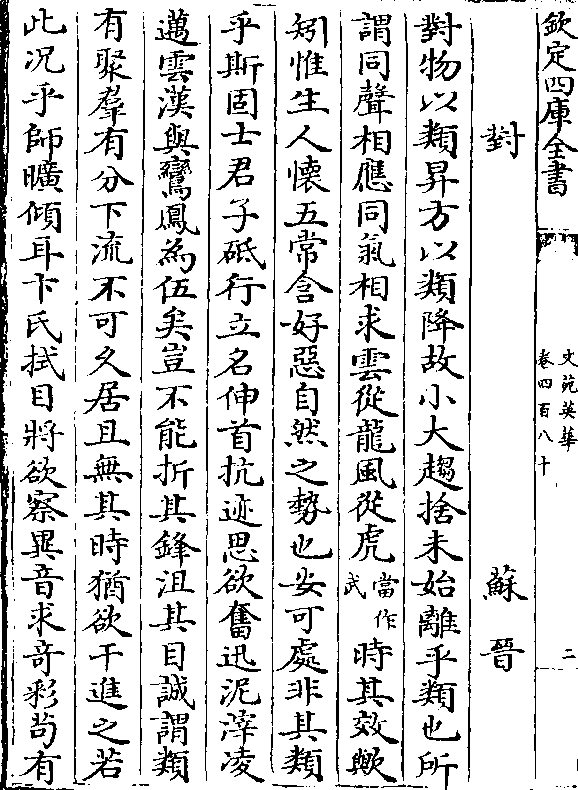 欽定四庫全書
文苑英華
卷四百八十
二
對
蘇晉
對物以類昇方以類降故小大趨捨未始離乎類也所
謂同聲相應同氣相求雲從龍風從虎當作武時其效歟
矧惟生人懷五常含好惡自然之勢也安可處非其類
乎斯固士君子砥行立名伸首抗迹思欲奮迅泥滓凌
邁雲漢與鸞鳳為伍矣豈不能折其鋒沮其目誠謂類
有聚羣有分下流不可久居且無其時猶欲干進之若
此況乎師曠傾耳卞氏拭目將欲察異音求奇彩茍有